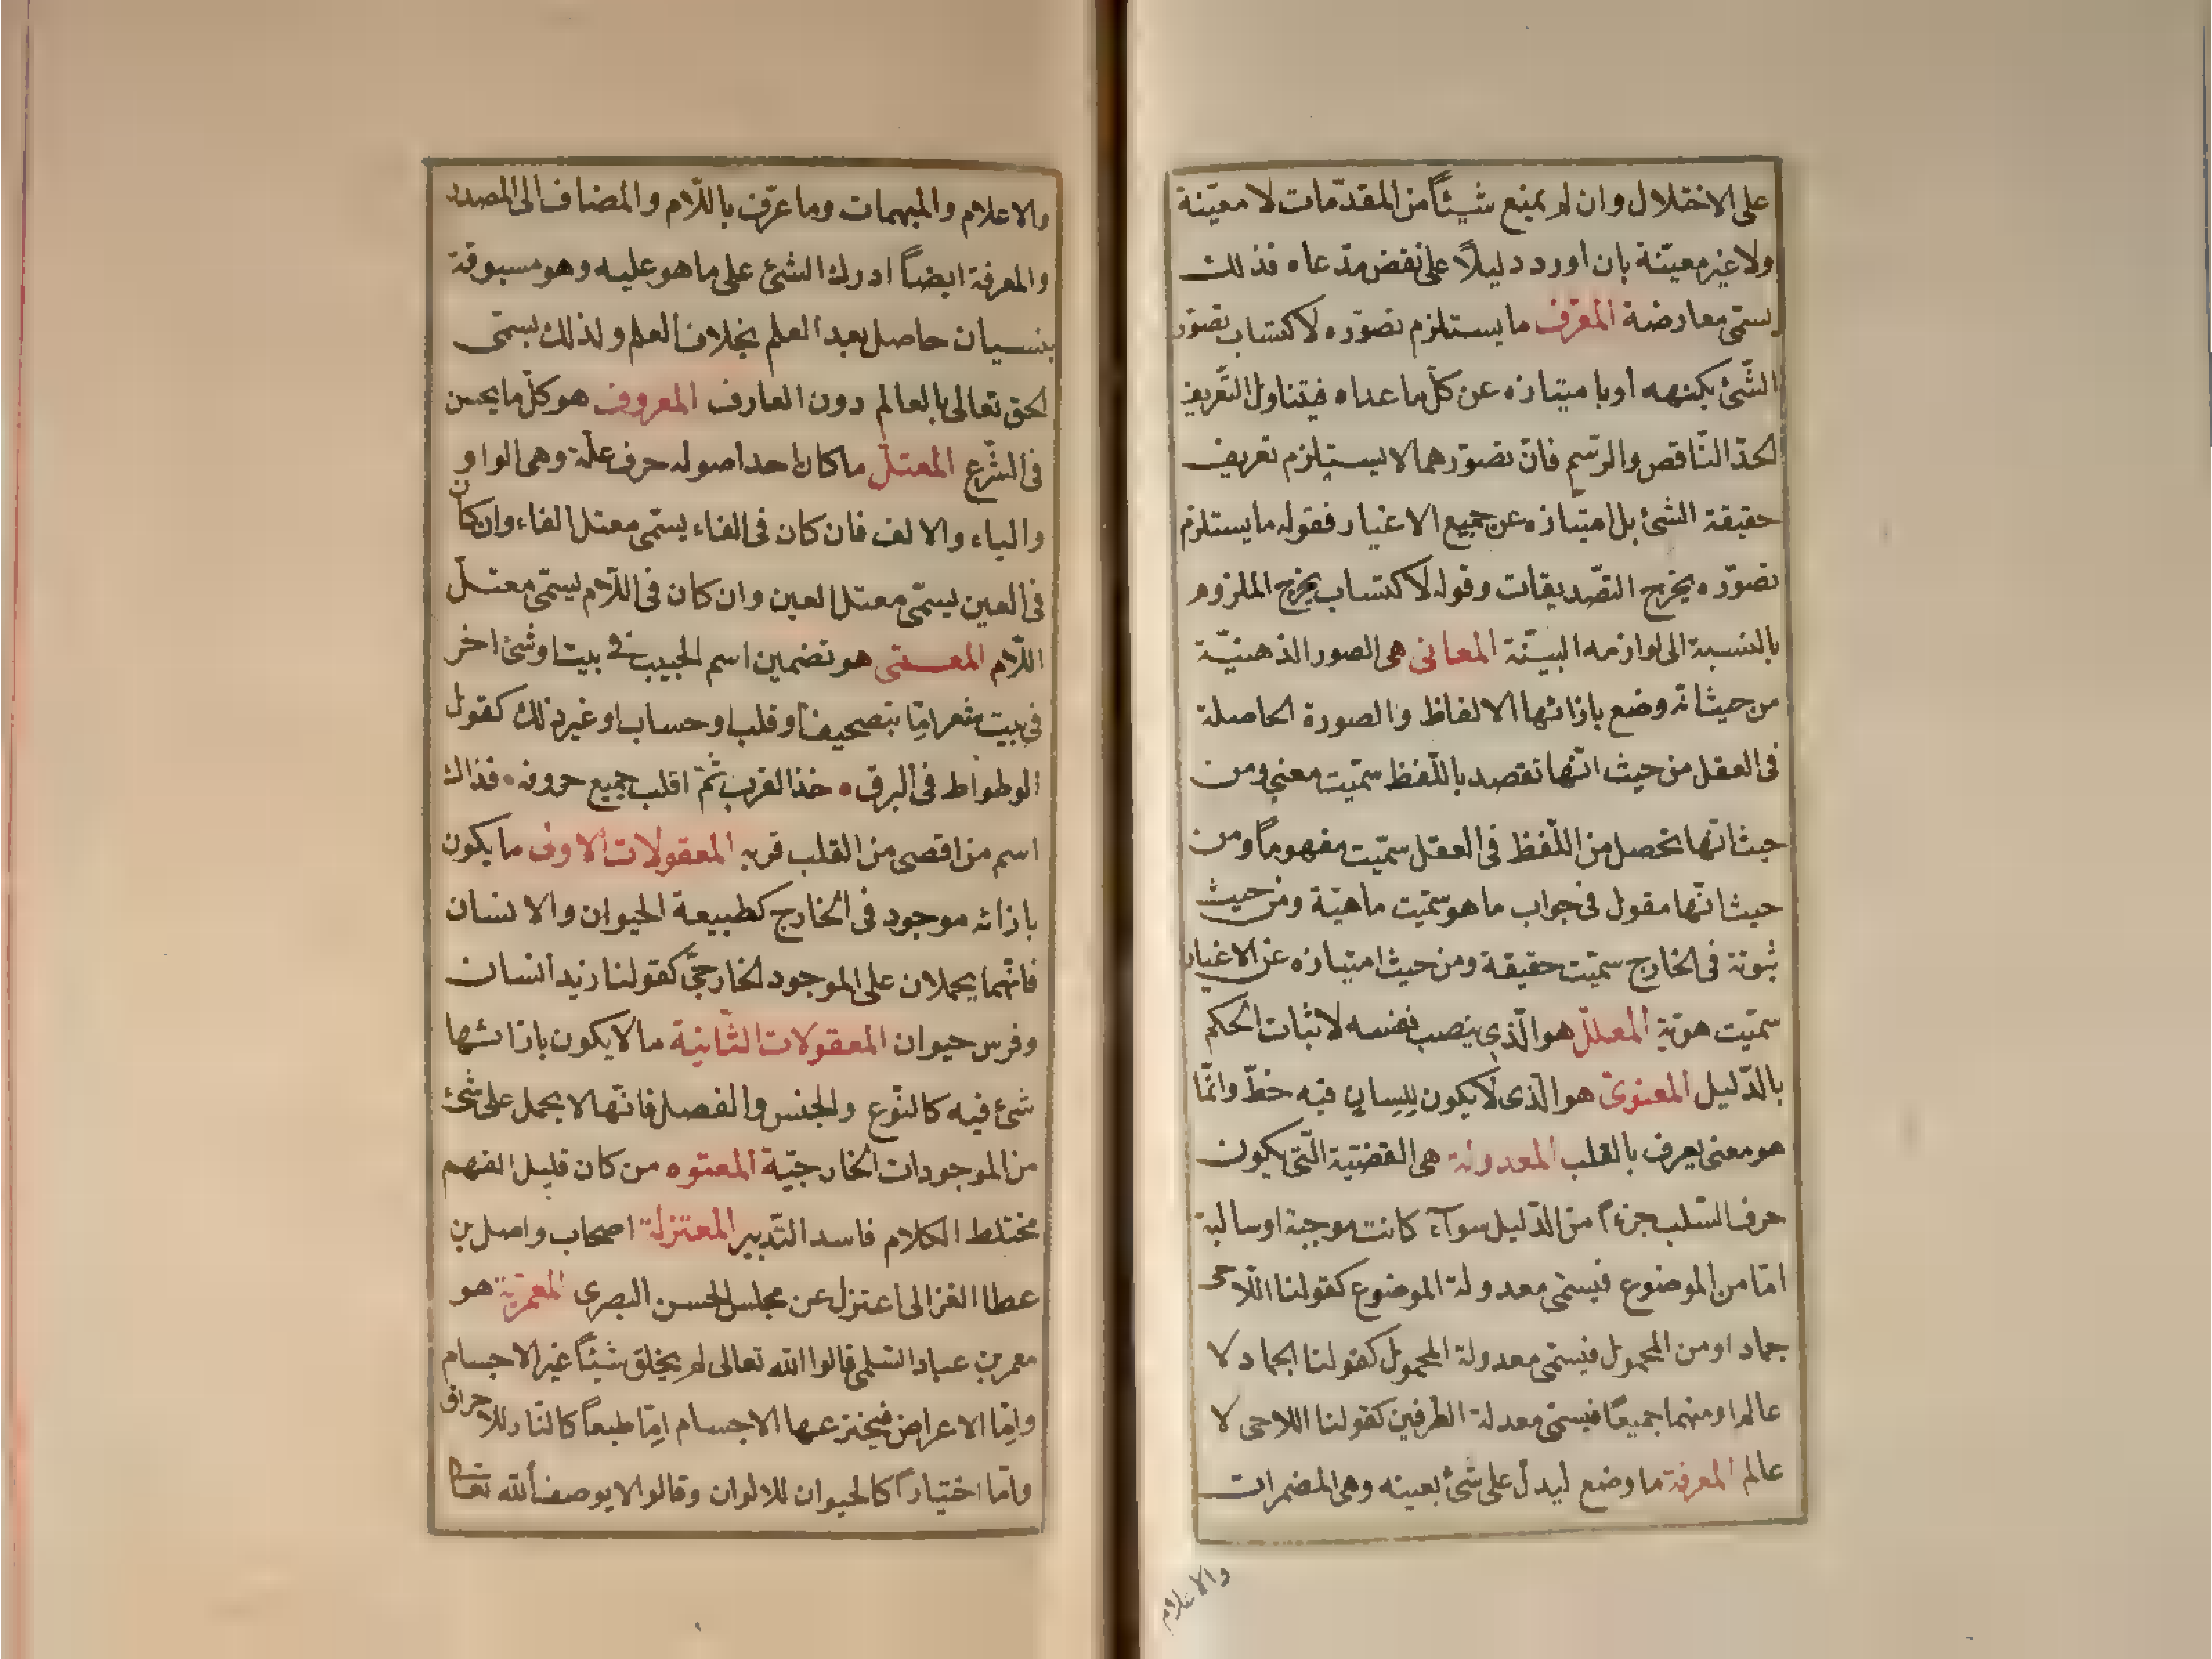 على الاختلال وان لم يمنع شيئاً من المقدّمات لا معيّنة
ولا غير معيّنة بان اورد دليلاً على نقض مدّعاه فذلك
يسمّى معارضة المعرّف ما يستلزم تصوّره لاكتساب تصوّر
الشّئ بكنهه أو بامتيازه عن كلّ ما عداه فيتناول التّعريف
الحدّ النّاقص والرّسم فانّ تصوّرهما لا يستلزم تعريف
حقيقة الشئ بل امتيازه عن جميع الاغيار فقوله ما يستلزم
تصوّره يخرج التصّديقات وقوله لاكتساب يخرج الملزوم
بالنسبة الى لوازمه البيّنة المعانى هى الصور الذهنيّة
من حيث انّه وضع بازائها الالفاظ والصورة الحاصلة
فى العقل من حيث انّها تقصد باللّفظ سمّيت معنى ومن
حيث انّها تحصل من اللّفظ فى العقل سمّيت مفهوماً ومن
حيث انّها مقول فى جواب ما هو سمّيت ماهيّة ومن حيث
ثبوته فى الخارج سمّيت حقيقة ومن حيث امتيازه عن الاغيار
سمّيت هويّة المعلّل هو الّذى ينصب نفسه لاثبات الحكم
بالدّليل المعنوىّ هو الّذى لا يكون للسان فيه حظّ وانّما
هو معنى يعرف بالقلب المعدولة هى القضيّة الّتى يكون
حرف السّلب جزءاً من الدّليل سوآء كانت موجبة او سالبة
امّا من الموضوع فيسمّى معدولة الموضوع كقولنا اللّاحى
جماد او من المحمول فيسمّى معدولة المحمول كقولنا الجماد لا
عالم او منهما جميعًا فيسمّى معدلة الطرفين كقولنا اللاحى لا
عالم المعرفة ما وضع ليدلّ على شئ بعينه وهى المضمرات
والاعلام
والاعلام والمبهمات وما عرّف باللّام والمضاف الى المصدر
والمعرفة ايضاً ادرك الشئ على ما هو عليه وهو مسبوقة
بنسيان حاصل بعد العلم بخلاف العلم ولذلك يسمّى
الحق تعالى بالعالم دون العارف المعروف هو كلّ ما يحسن
فى الشّرع المعتلّ ما كان احد اصوله حرف علّة وهى الواو
والياء والالف فان كان فى الفاء يسمّى معتل الفاء وان كان
فى العين يسمّى معتل العين وان كان فى اللّام يسمّى معتلّ
اللّام المعمّى هو تضمين اسم الحبيب فى بيت او شئ اخر
فى بيت شعر امّا بتصحيف او قلب او حساب او غير ذلك كقول
الوطواط فى البرق ه خذ القرب ثمّ اقلب جميع حروفه ه فذاك
اسم من اقصى من القلب قربه المعقولات الاولى ما يكون
بازائه موجود فى الخارج كطبيعة الحيوان والانسان
فانّهما يحملان على الموجود الخارجىّ كقولنا زيد انسان
وفرس حيوان المعقولات الثّانية ما لا يكون بازائها
شئ فيه كالنّوع والجنس والفصل فانّها لا يحمل على شئ
من الموجودات الخارجيّة المعتوه من كان قليل الفهم
مختلط الكلام فاسد التّدبير المعتزلة اصحاب واصل بن
عطا الغزالى اعتزل عن مجلس الحسن البصرى المعمّرية هو
معمر بن عباد السّلمى قالوا الله تعالى لم يخلق شيئاً غير الاجسام
وامّا الاعراض فيخترعها الاجسام امّا طبعاً كالنّار للاحراق
وامّا اختياراً كالحيوان للالوان وقالوا لا يوصف الله تعالى